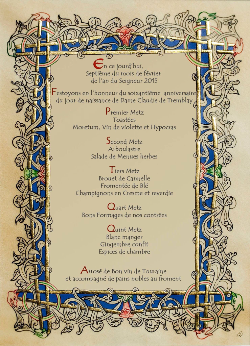 En ce jourd'hui,
Septième du mois de février
de l'an du Seigneur 2015
Festoyons en l'honneur du soixantième anniversaire
du jour de naissance de Dame Claude de Tremblay
Premier Metz
Toustées
Moretum, Vin de violette et Hypocras
Second Metz
Arboulastre
Salade de Menues herbes
Tiers Metz
Brouet de Cannelle
Fromentée de Blé
Champignons en Cresme et reverdie
Quart Metz
Bons Formages de nos contrées
Quint Metz
Blanc manger
Gingembre confit
Espices de chambre
Arrosé de Bon vin de Touraine
et accompagné de pains nobles au froment